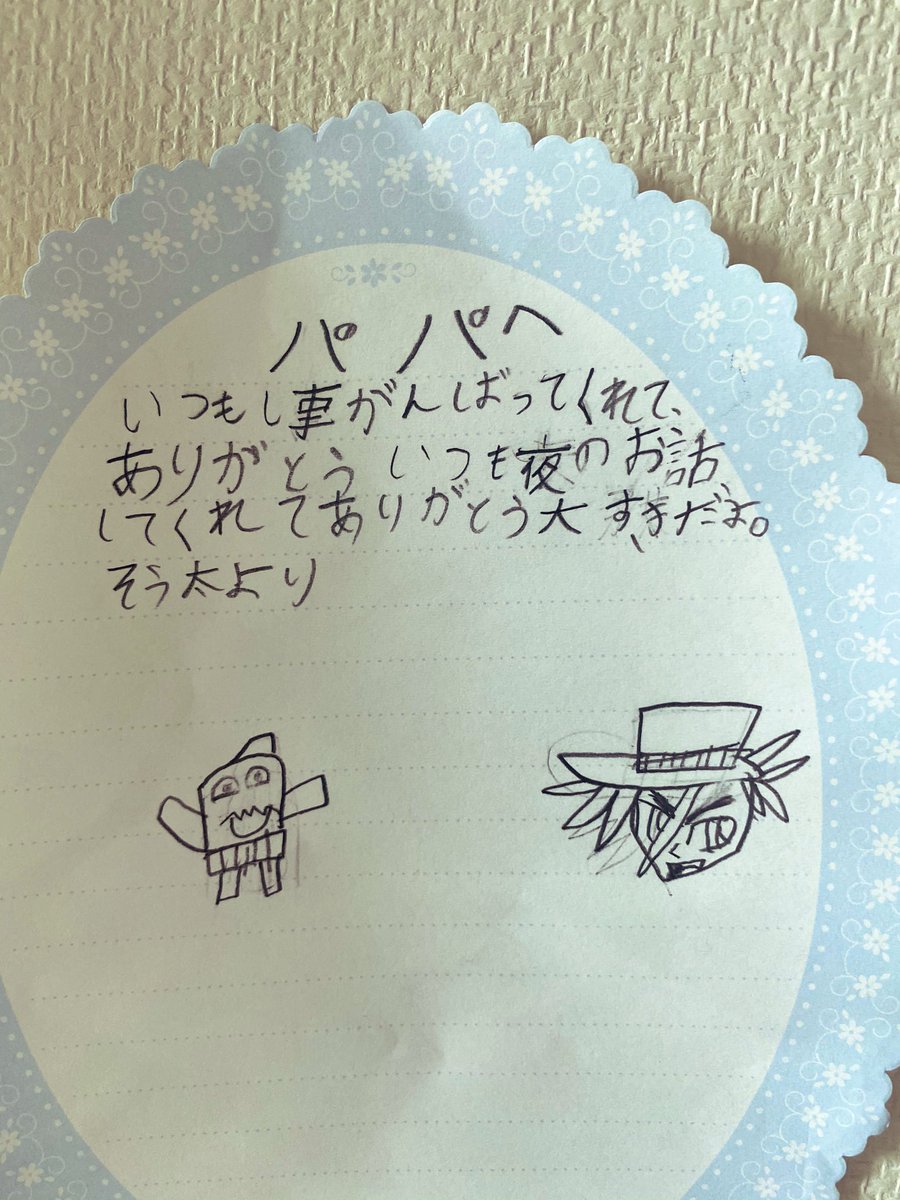 パパへ
いつもし事がんばってくれて、
ありがとういつも夜のお話、
してくれてありがとう大すきだよ。
そう太より